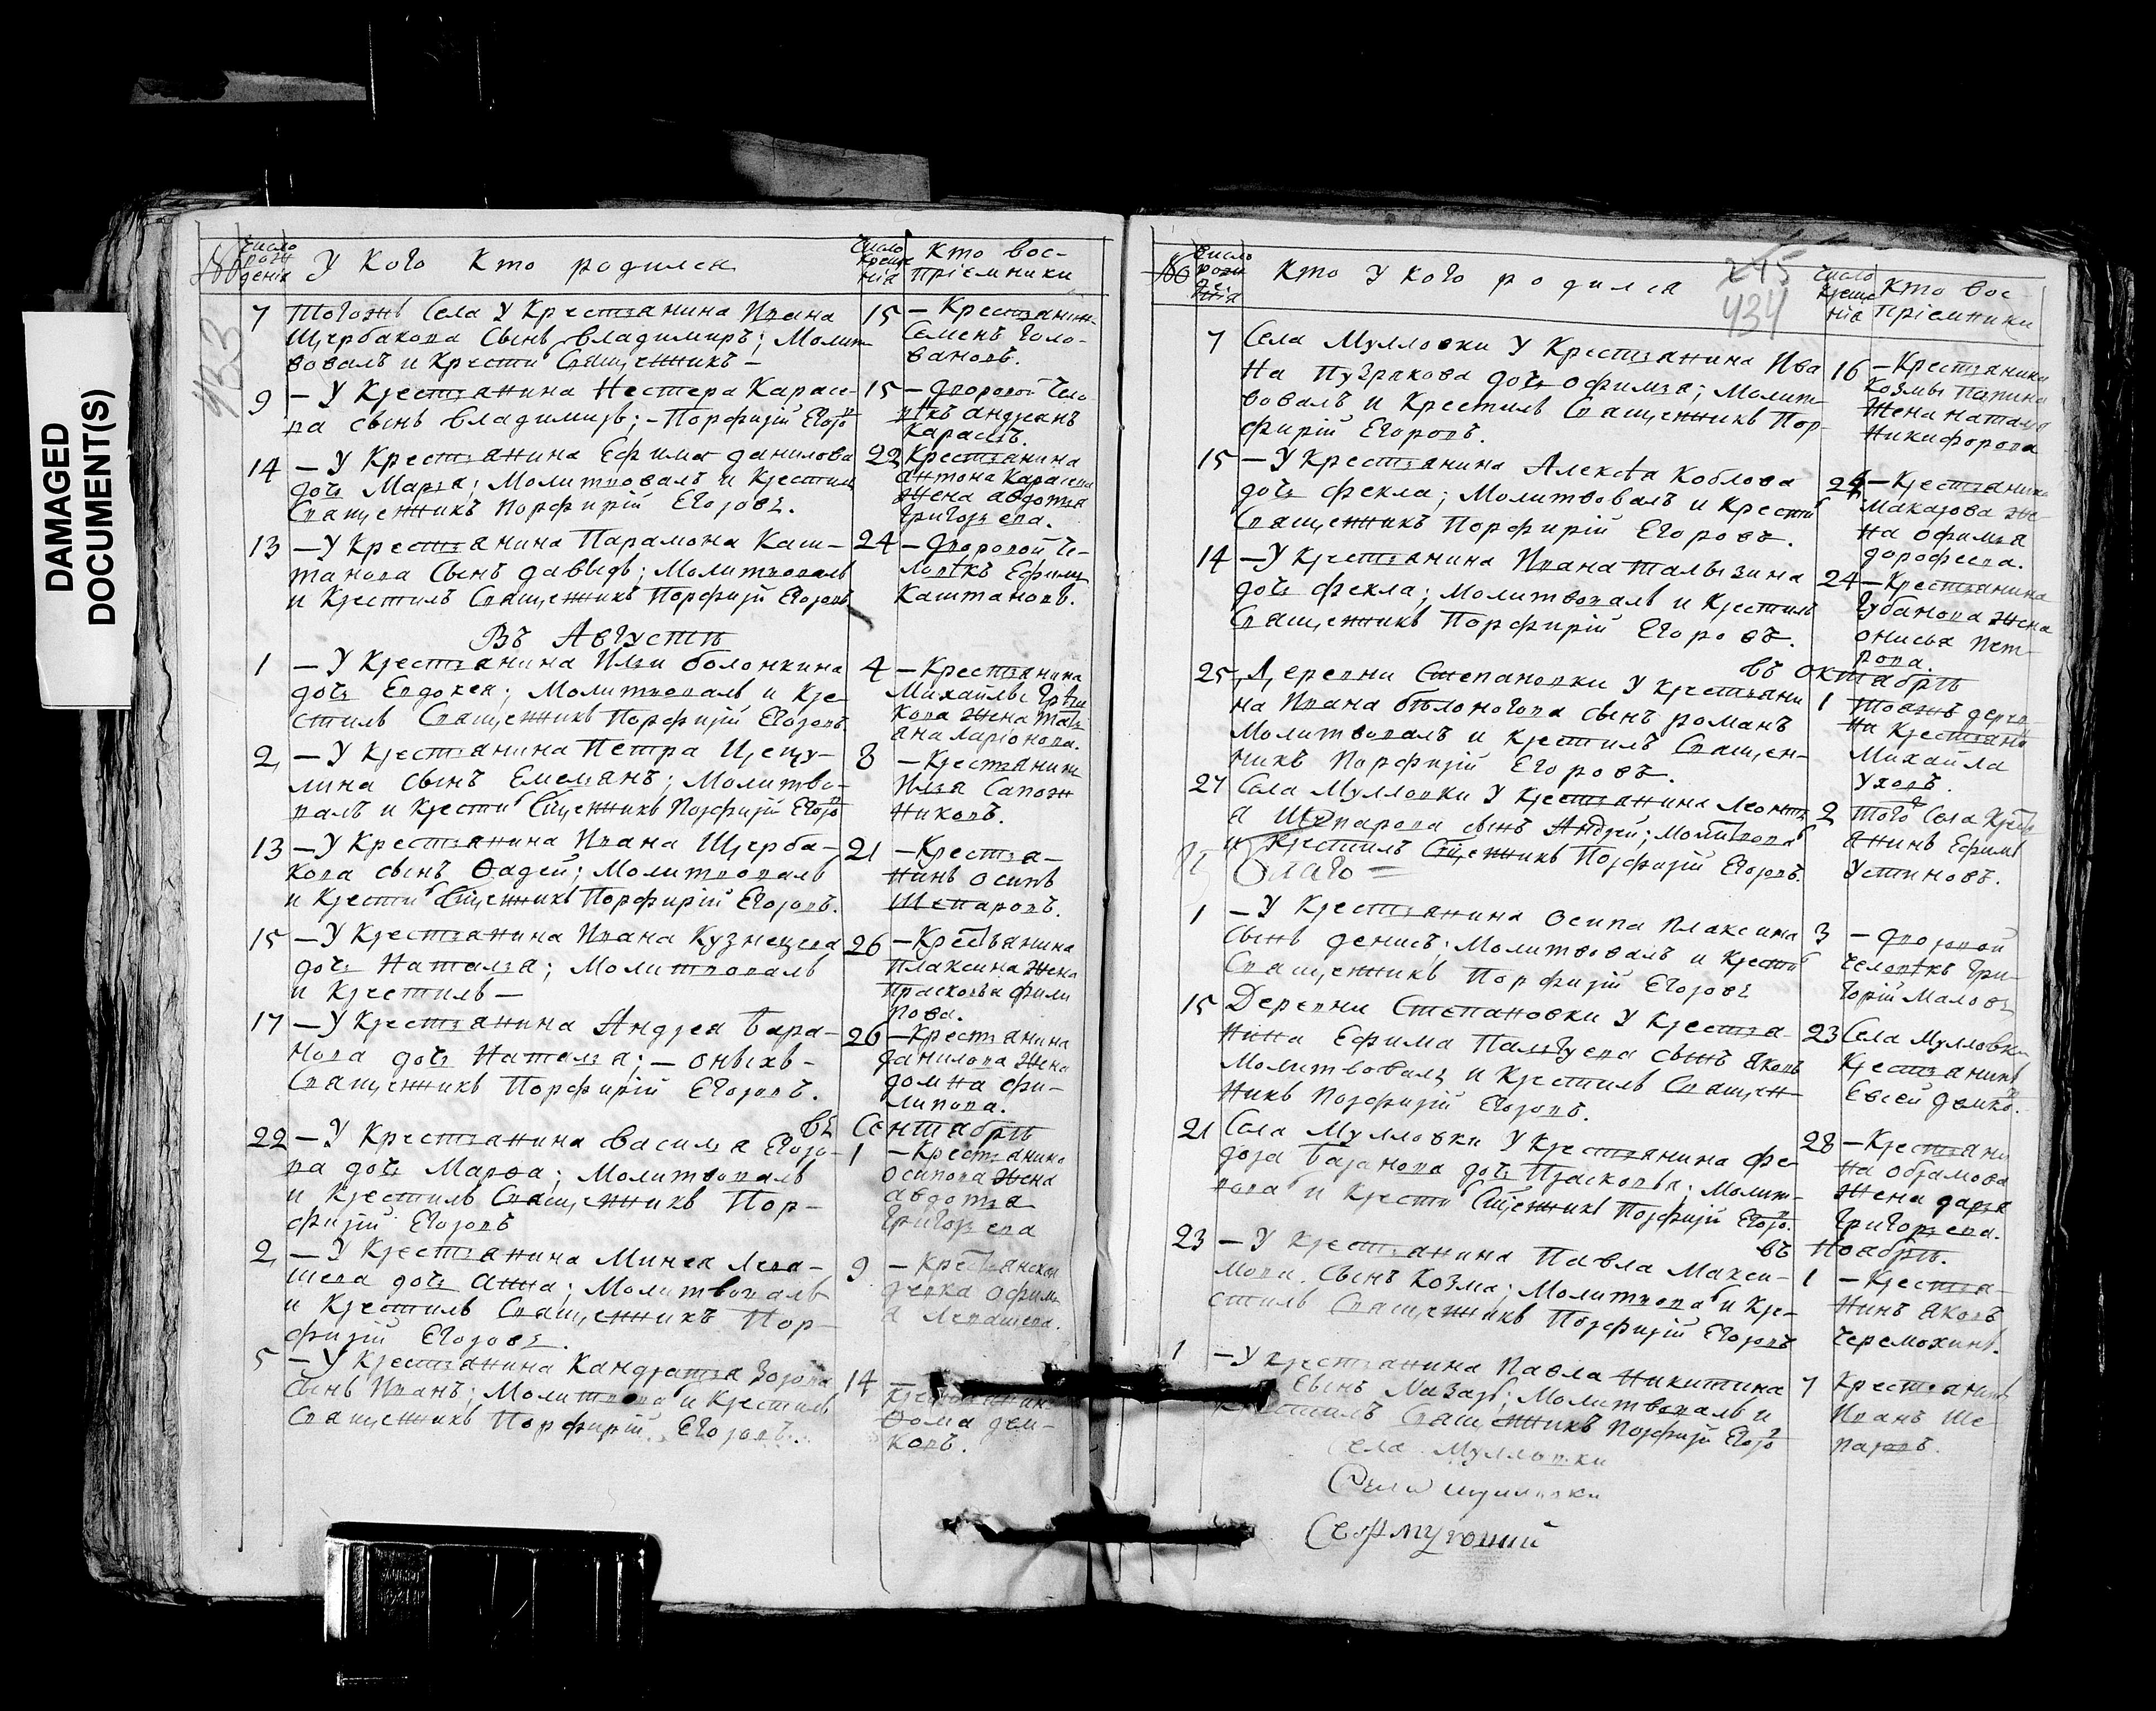 DAMAGED
DOCUMENT(S)
433
№
число рож деніѧ
У кого кто родилсѧ
число креще ніѧ
Кто вос-
пріемники
7
Тогожъ Села У Крестьянина Ивана
Щербакова Сынъ владимиръ; Молит
вовалъ и Крести Священникъ —
15
— Крестьянин
Семенъ Голо-
вановъ.
9
— У Крестьянина Нестера Карасе-
ва сынъ владимиръ; — Порфирій Егоро
15
— дворовой Чело
вѣкъ андреянъ
Карасевъ.
14
— У Крестьянина Ефима данилова
дочь Марья; Молитвовалъ и Крестилъ
Священникъ Порфирій Егоровъ.
22
Крестьянина
антона Карасева
жена авдотья
григорьева.
13
— У Крестьянина Парамона Каш-
танова Сынъ давыдъ; Молитвовалъ
и Крестилъ Священникъ Порфирій Егоровъ
24
— дворовой Че-
ловѣкъ Ефимъ
Каштановъ.
Въ Августѣ
1
— У Крестьянина Ильи болонкина
дочь Евдокея; Молитвовалъ и Кре-
стилъ Священникъ Порфирій Егоровъ.
4
— Крестьянина
Михайлы
кова жена Тать
яна Ларіонова.
2
— У Крестьянина Петра Щецу-
лина сынъ Емельянъ; Молитво-
валъ и Крести Сщенникъ Порфирій Егоро
8
— Крестьянинъ
Илья Сапож
никовъ.
13
— У Крестьянина Ивана Щерба-
кова сынъ Ѳадей; Молитвовалъ
и Крести Сщенникъ Порфирій Егоровъ.
21
— Крестья-
нинъ осипъ
Шепаровъ.
15
— У Крестьянина Ивана Кузнецева
дочь Наталья; Молитвовалъ
и Крестилъ —
26
— Крестьянина
плаксина жена
Прасковья фили
пова.
17
— У Крестьянина Андрея бара-
нова дочь Наталья; — оныхъ —
Священникъ Порфирій Егоровъ.
26
— Крестьянина
данилова жена
домна фи-
липова.
въ Сентябрѣ
22
— У Крестьянина василья Егоро-
ва дочь Марѳа; Молитвовалъ
и Крестилъ Священникъ Пор-
фирій Егоровъ
1
— Крестьянина
осипова жена
авдотья
григорьева
2
— У Крестьянина Минея Лева-
шева дочь анна; Молитвовалъ
и Крестилъ Священникъ Пор-
фирій Егоровъ.
9
— Крестьянская
девка офимь
я Левашева.
5
— У Крестьянина Кандратья Зорова
сынъ Иванъ; Молитвова и Крестилъ
Священникъ Порфирій Егоровъ.
14
— Крестьянин
Ѳома дем-
ковъ.
№
число рож де ніѧ
Кто У кого родилсѧ
245
434
число креще ніѧ
Кто вос
пріемники
7
Села Мулловки У Крестьянина Ива
на Пузракова дочь офимья; Молит-
вовалъ и Крестилъ Священникъ Пор-
фирій Егоровъ.
16
— Крестьянина
Козмы Папина
жена наталья
никифорова
15
— У Крестьянина Алексѣа Коблова
дочь фекла; Молитвовалъ и Крести
Священникъ Порфирій Егоровъ.
24
— Крестьянина
макарова же-
на офимья
дорофеева.
14
— У Крестьянина Ивана Талызина
дочь фекла; Молитвовалъ и Крестилъ
Священникъ Порфирій Егоровъ.
24
— Крестьянина
губанова жена
онисья пет-
рова.
въ октябрѣ
25
Деревни Степановки У Крестьяни
на Ивана бѣлоногова сынъ романъ
Молитвовалъ и Крестилъ Священ-
никъ Порфирій Егоровъ.
1
Тояжъ дерев
ни Крестьян
Михайла
Уховъ.
27
Села Мулловки У Крестьянина Леонть
я Шепарова сынъ Андрей; Молитвова
и Крестилъ Сщенникъ Порфирій Егоровъ.
2
Того Села Крес
янинъ Ефимъ
Устиновъ.
благо =
1
— У Крестьянина осипа плаксина
Сынъ денисъ; Молитвовалъ и Крести
Священникъ Порфирій Егоровъ
3
— дворовой
Человѣкъ гри-
горій Маловъ
15
Деревни Степановки У Крестья-
нина Ефима сынъ яковъ
Молитвовалъ и Крестилъ Священ-
никъ Порфирій Егоровъ.
23
Села Мулловки
Крестьянинъ
Евсей демко.
21
Села Мулловки У Крестьянина фе
дора баранова дочь Прасковья; Молит-
вова и Крести Сщенникъ Порфирій Егоро.
28
— Крестьяни
на обрамова
жена дарья
григорьева.
въ Ноабрѣ.
23
— У Крестьянина Павла Макси-
мова. Сынъ Козма; Молитвова и Кре-
стилъ Священникъ Порфирій Егоровъ
1
— Крестья-
нинъ яковъ
Черемохинъ.
1
— У Крестьянина Павла Никитина
Сынъ Назаръ; Молитвовалъ и
Крестилъ Священникъ Порфирій Егоро
7
Крестьянинъ
Иванъ Ше-
паровъ.
Села Мулловки